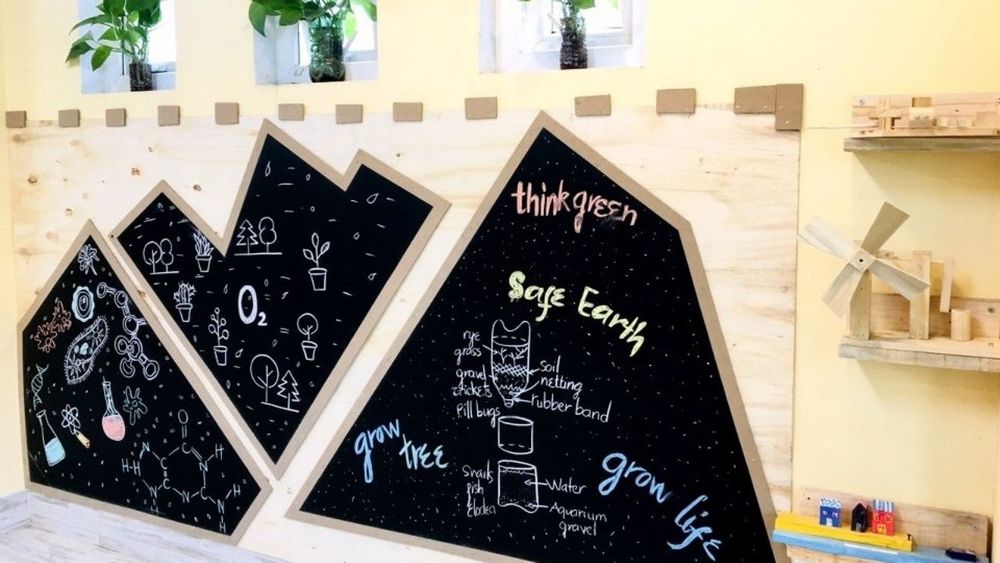 think green
Safe Earth
rye
grass
gravel
crickets
Pill bugs
soil
netting
rubber band
grow
tree
Snails
fish
Elodea
Water
Aquarium
gravel
grow life
O2
N
H
H
H
N
N
N
H
H